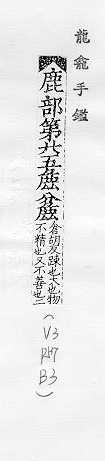 龍龕手鑑
鹿部第六五
倉胡反踈也大也物
不精也又不善也二
(V3
RH7
B3)